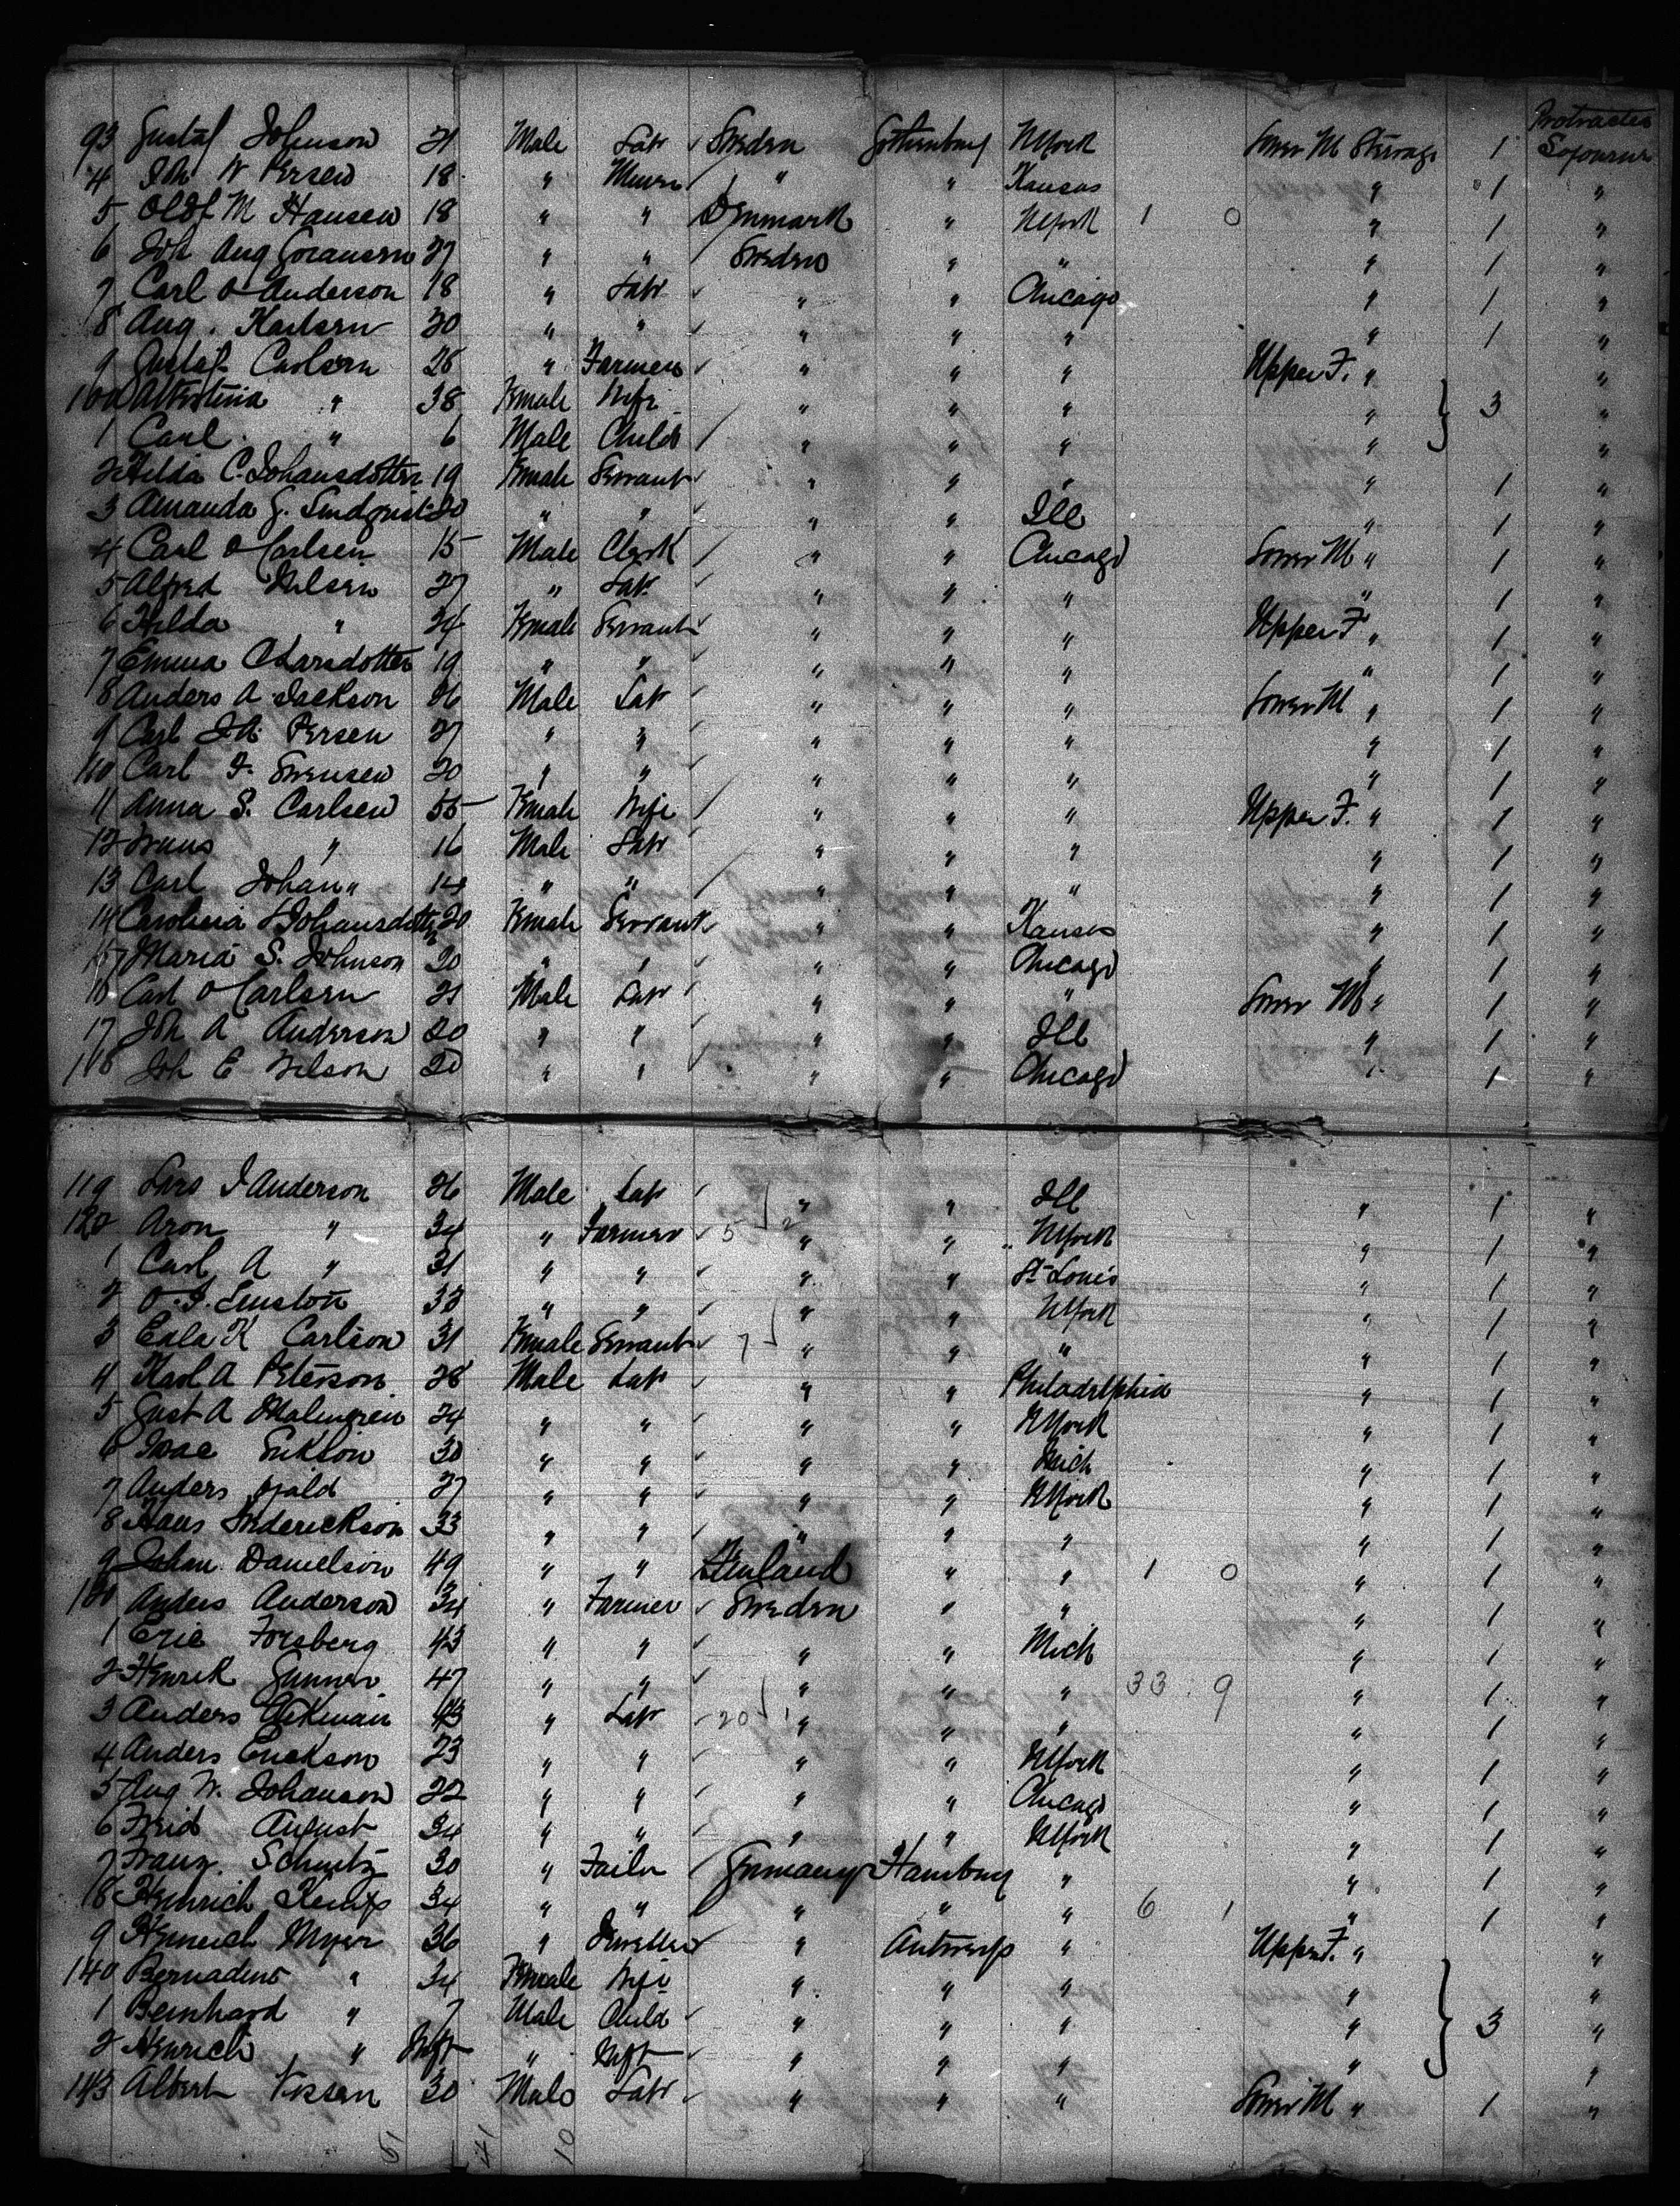 Protracted
93 Gustaf Johnson 21 Male Labr Sweden Gothenburg NYork Lower M Steerage 1 Sojourn
4 Joh W Persen 18 " " " Kansas " 1 "
5 Olof M Hansen 18 " " Denmark " NYork 1 0 " 1 "
6 Joh Aug Goransen 27 " " Sweden " " " 1 "
7 Carl O Anderson 18 " Labr " " Chicago " 1 "
8 Aug. Karlsen 30 " " " " " " 1 "
9 Gustaf Carlsen 28 " Farmer " " " Upper F. " "
100 Albertina " 38 Female Wife " " " " 3 "
1 Carl " 6 Male Child " " " " "
2 Hilda C. Johansdotter 19 Female Servant " " " " 1 "
3 Amanda G. Lindqvist 20 " " " " Ill " 1 "
4 Carl O Carlsen 15 Male Clerk " " Chicago Lower M " 1 "
5 Alfred Nilsen 27 " Labr " " " " 1 "
6 Hilda " 24 Female Servant " " " Upper F " 1 "
7 Emma C Larsdotter 19 " " " " " " 1 "
8 Anders A Isackson 26 Male Labr " " " Lower M " 1 "
9 Carl Persen 27 " " " " " " 1 "
110 Carl F. Svensen 20 " " " " " " 1 "
11 Anna S. Carlsen 55 Female Wife " " " Upper F. " 1 "
12 Frans " 16 Male Labr " " " " 1 "
13 Carl Johan " 14 " " " " " " 1 "
14 Carolina Johansdotter 20 Female Servant " " Kansas " 1 "
15 Maria S. Johnson 20 " " " " Chicago " 1 "
16 Carl O Carlsen 21 Male Labr " " " Lower M " 1 "
17 Joh A Anderson 20 " " " " Ill " 1 "
118 Joh E Nelson 20 " " " " Chicago " 1 "
119 Lars J Anderson 26 Male Labr " " Ill " 1 "
120 Aron " 34 " Farmer 5 2 " " NYork " 1 "
1 Carl A " 31 " " " " St Louis " 1 "
2 O. J. 33 " " " " NYork " 1 "
3 K Carlson 31 Female Servant 7 " " " " 1 "
4 Karl A Peterson 28 Male Labr " " Philadelphia " 1 "
5 Gust A Malmgren 24 " " " " NYork " 1 "
6 Isac Erikson 30 " " " " Mich " 1 "
7 Anders 27 " " " " NYork " 1 "
8 Hans Frederickson 33 " " " " " " 1 "
9 Johan Danielson 49 " " Finland " " 1 0 " 1 "
130 Anders Anderson 34 " Farmer Sweden " " " 1 "
1 Eric Forsberg 43 " " " " Mich " 1 "
2 Henrik 47 " " " " " 33 9 " 1 "
3 Anders 43 " Labr 20 1 " " " " 1 "
4 Anders Erickson 23 " " " " NYork " 1 "
5 Aug W. Johanson 22 " " " " Chicago " 1 "
6 Frid August 34 " " " " NYork " 1 "
7 Franz Schmitz 30 " Tailor Germany Hamburg " " 1 "
18 Heinrich 34 " " " " " 6 1 " 1 "
9 Heinrich Myer 36 " Jeweller " Antwerp " Upper F. " "
140 Bernadine " 34 Female Wife " " " " "
1 Bernhard " 7 Male Child " " " " 3 "
2 Heinrich " Inft " Inft " " " " "
143 Albert 30 Male Labr " " " Lower M " 1 "
51 41 10